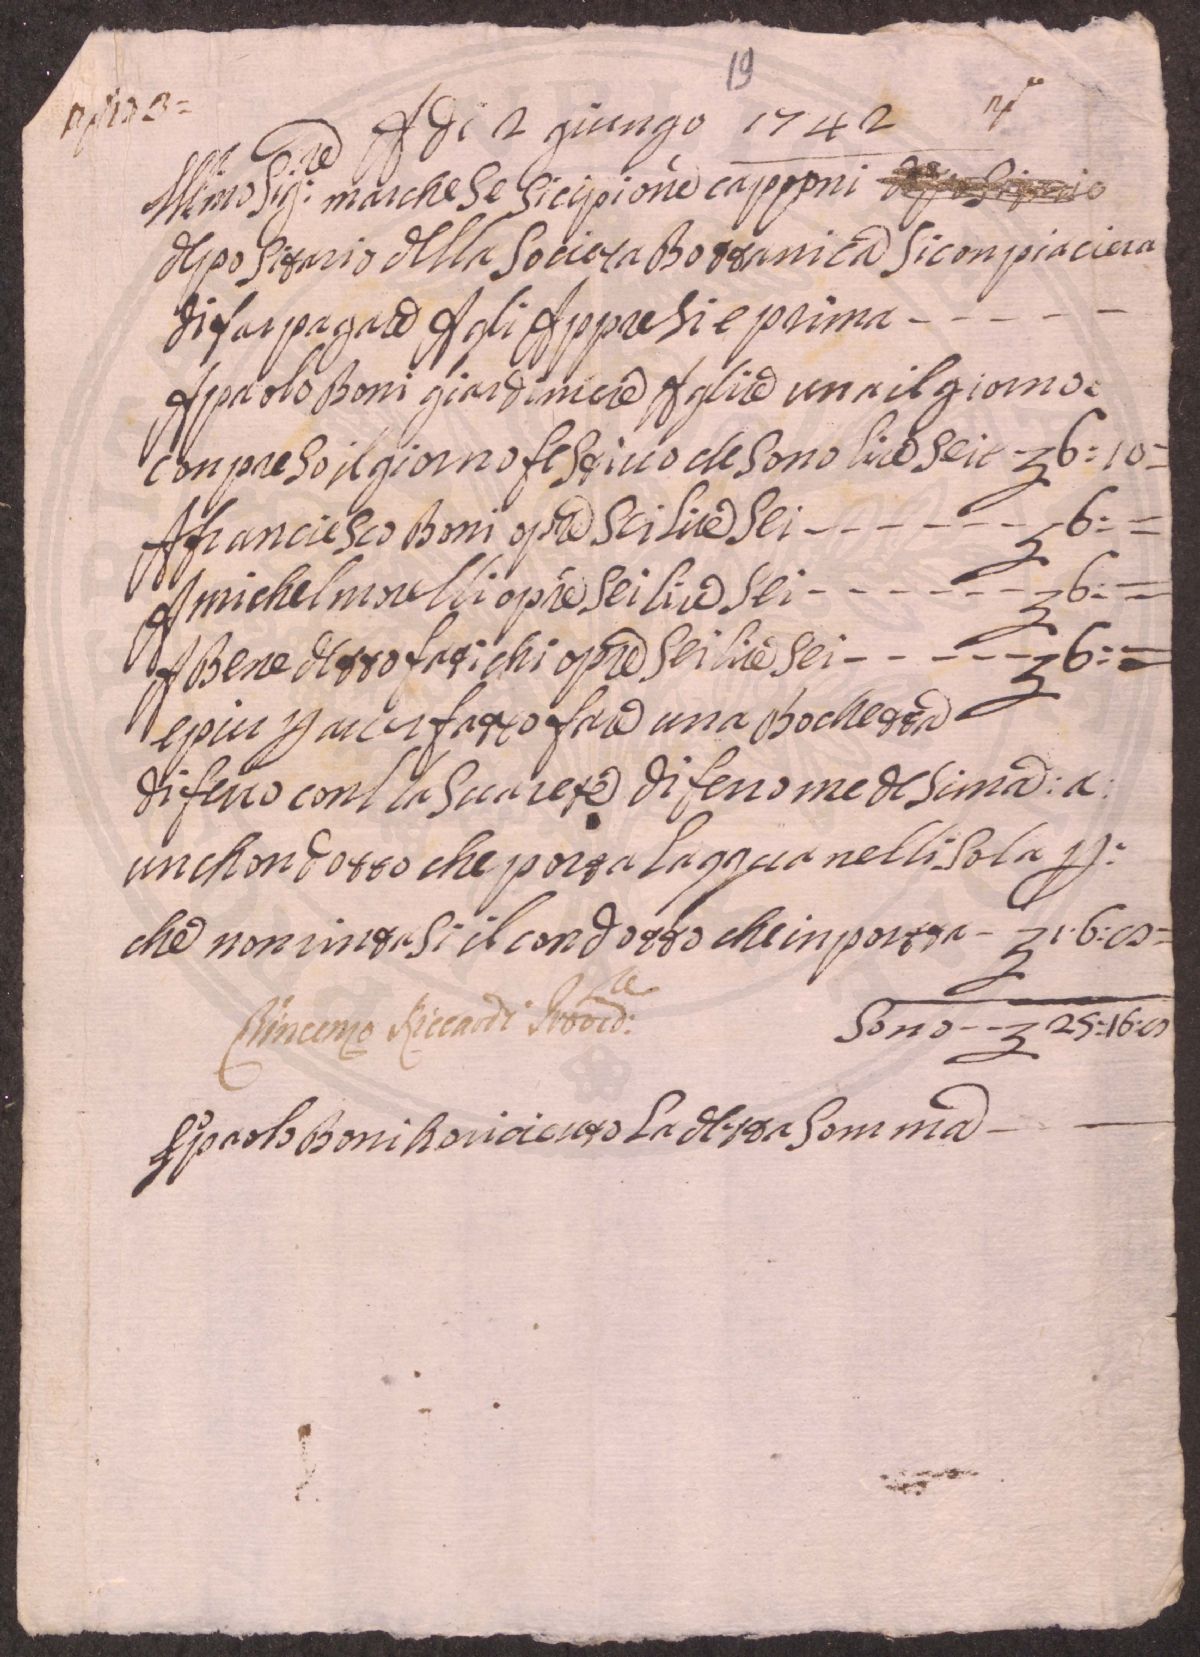 19
Adi 2 giungo 1742
Illmo Sig:re marchese Sicipione capponi
depositario della Societa Bottanica Si conpiaciera
di far pagare Agli Appresi e prima - - - - -
A paolo Boni giardiniere A glire una il giorno
conpreso il giorno festiuo che sono lire seie - 6: 10 =
A franciesco Boni opre sei lire sei - - - - - - 6: =
A michel morelli opre sei lire sei - - - - - - 6: =
A Benedetto fatichi opre sei lire sei - - - - - 6: =
e piu p auer fatto fare una Bochetta
di fero conl la sua rete di fero medesima: a:
un chondotto che porta Lagqua nellisola p:
che non intasi il condotto che inportta - 1: 6: 8 =
Vincenzo Riccardi Provved:re
Sono - - 25: 16: 8
Io paolo Boni o riceuto La detta somma - -